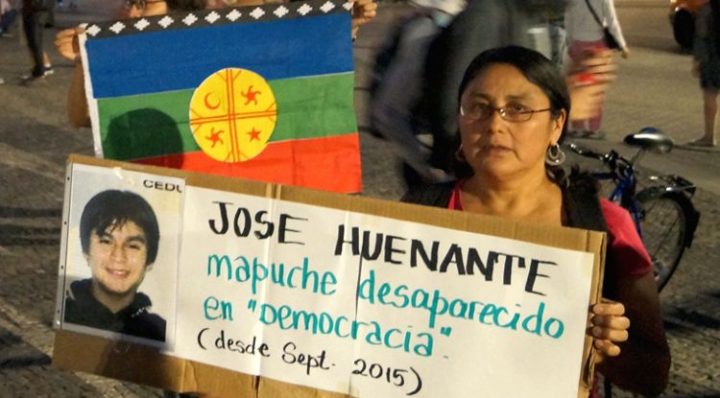 CEDU
JOSE HUENANTE
mapuche desaparecido
en "Democracia".
(desde Sept. 2015)